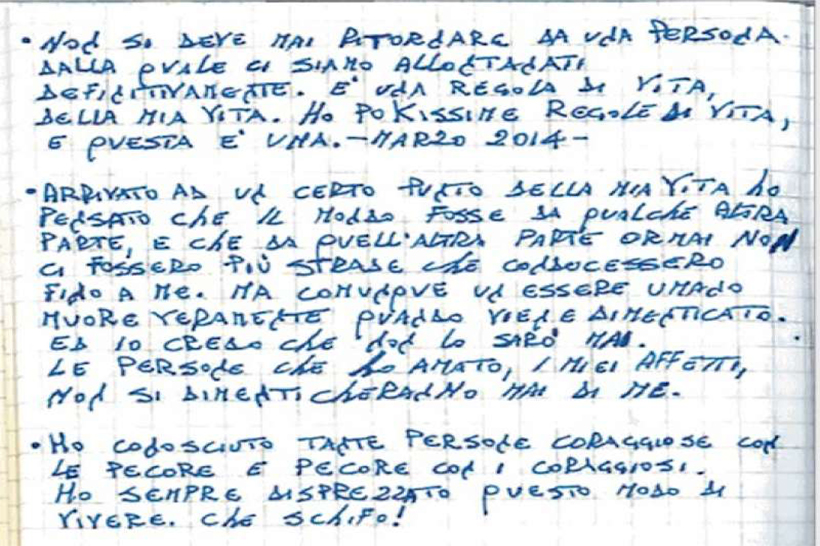 • NON SI DEVE MAI RITORNARE DA UNA PERSONA.
DALLA QUALE CI SIAMO ALLONTANATI
DEFINITIVAMENTE. E' UNA REGOLA DI VITA,
DELLA MIA VITA. HO POKISSIME REGOLE DI VITA,
E QUESTA E' UNA. - MARZO 2014 -
• ARRIVATO AD UN CERTO PUNTO DELLA MIA VITA HO
PENSATO CHE IL MONDO FOSSE DA QUALCHE ALTRA
PARTE, E CHE DA QUELL'ALTRA PARTE ORMAI NON
CI FOSSERO PIÙ STRADE CHE CONDUCESSERO
FINO A ME. MA COMUNQUE UN ESSERE UMANO
MUORE VERAMENTE QUANDO VIENE DIMENTICATO.
ED IO CREDO CHE NON LO SARO' MAI.
LE PERSONE CHE HO AMATO, I MIEI AFFETTI,
NON SI DIMENTICHERANNO MAI DI ME.
• HO CONOSCIUTO TANTE PERSONE CORAGGIOSE CON
LE PECORE E PECORE CON I CORAGGIOSI.
HO SEMPRE DISPREZZATO QUESTO MODO DI
VIVERE. CHE SCHIFO!